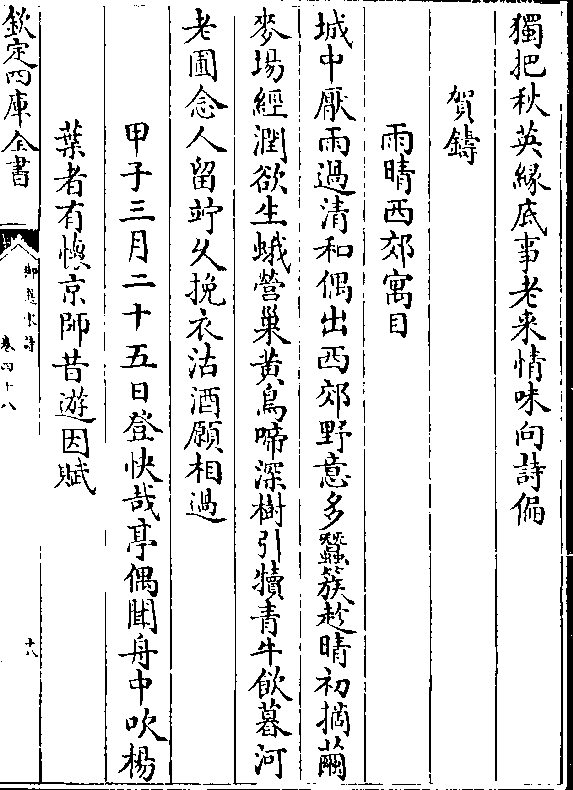 獨把秋英緣底事老來情味向詩偏
賀鑄
雨晴西郊寓目
城中厭雨過清和偶出西郊野意多蠶簇趁晴初摘繭
麥場經潤欲生蛾營巢黃鳥啼深樹引犢青牛飲暮河
老圃念人留竚久挽衣沽酒願相過
甲子三月二十五日登快哉亭偶聞舟中吹楊
葉者有懷京師昔遊因賦
欽定四庫全書
御選宋詩
卷四十八
十八